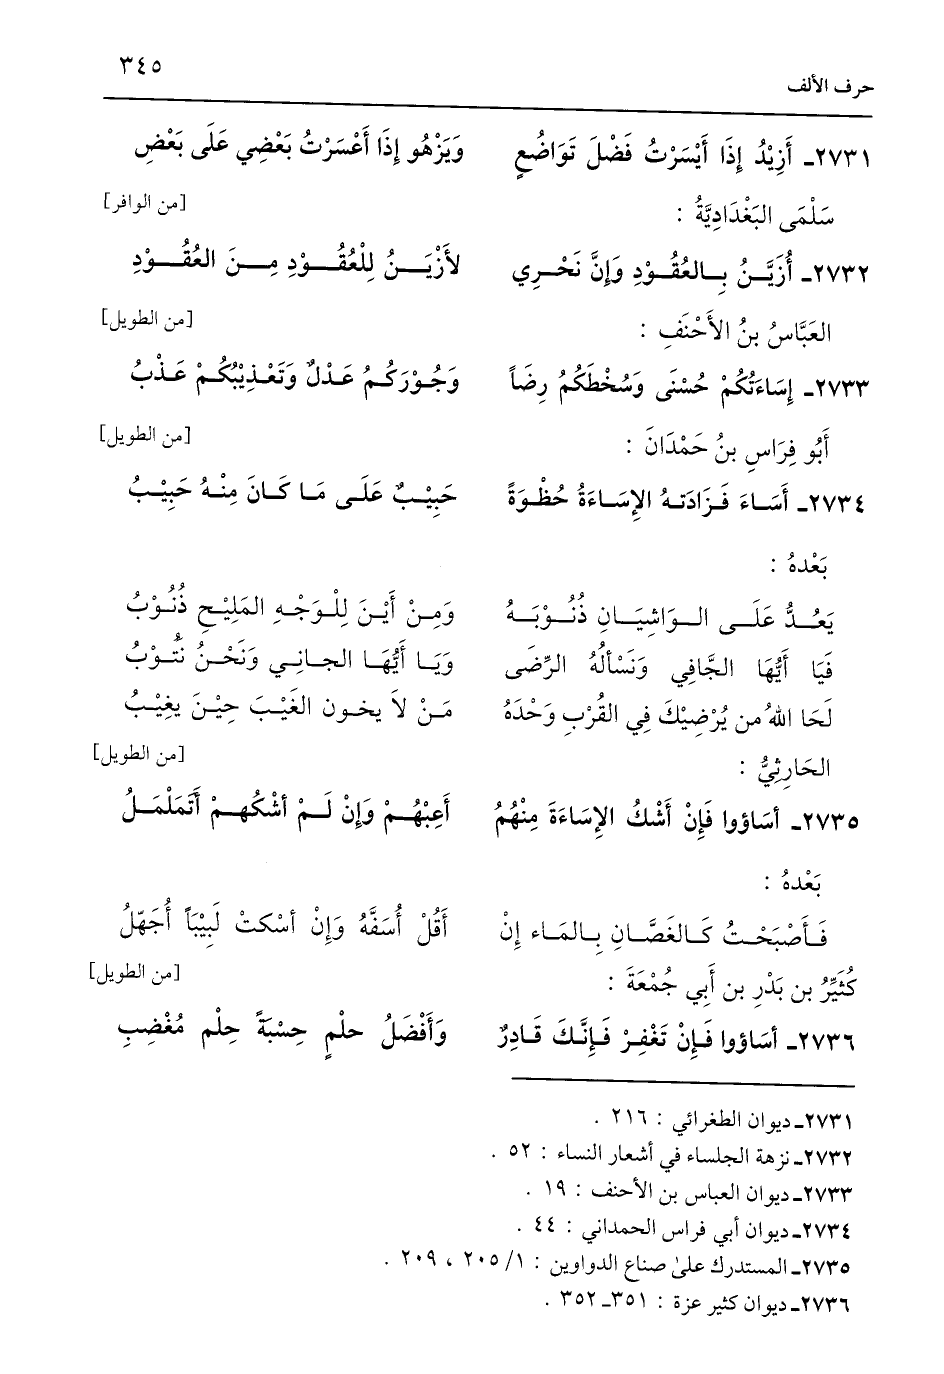 حرف الألف ٣٤٥
٢٧٣١ـ أَزِيْدُ إِذَا أَيْسَرْتُ فَضْلَ تَوَاضُعٍ وَيَزْهُو إِذَا أَعْسَرْتُ بَعْضِي عَلَى بَعْضِ
سَلْمَى البَغْدَادِيَّةُ : [من الوافر]
٢٧٣٢ـ أُزَيَّنُ بِالعُقُوْدِ وَإِنَّ نَحْرِي لأَزْيَنُ لِلْعُقُوْدِ مِنَ العُقُوْدِ
العَبَّاسُ بنُ الأَحْنَفِ : [من الطويل]
٢٧٣٣ـ إِسَاءَتُكُمْ حُسْنَى وَسُخْطَكُمُ رِضَاً وَجُوْرَكُمُ عَدْلٌ وَتَعْذِيْبُكُمْ عَذْبُ
أَبُو فِرَاسِ بنُ حَمْدَانَ : [من الطويل]
٢٧٣٤ـ أَسَاءَ فَزَادَتهُ الإِسَاءَةُ حُظْوَةً حَبِيْبٌ عَلَى مَا كَانَ مِنْهُ حَبِيْبُ
بَعْدهُ :
يَعُدُّ عَلَى الوَاشِيَانِ ذُنُوْبَهُ وَمِنْ أَيْنَ لِلْوَجْهِ المَلِيْحِ ذُنُوْبُ
فَيَا أَيُّهَا الجَّافِي وَنَسْأَلُهُ الرِّضَى وَيَا أَيُّهَا الجانِي وَنَحْنُ نَتُوْبُ
لَحَا اللهُ من يُرْضِيْكَ فِي القُرْبِ وَحْدَهُ مَنْ لاَ يخون الغَيْبَ حِيْنَ يغِيْبُ
الحَارِثِيُّ : [من الطويل]
٢٧٣٥ـ أسَاؤوا فَإِنْ أَشْكُ الإِسَاءَةَ مِنْهُمُ أَعِبْهُمْ وَإِنْ لَمْ أشْكُهمْ أَتَمَلْمَلُ
بَعْدهُ :
فَأَصْبَحْتُ كَالغَصَّانِ بِالمَاء إنْ أَقُلْ أُسَفَّهُ وَإِنْ أسْكتْ لَبِيْبَاً أُجَهّلُ
كُثَيِّرُ بن بَدْرِ بن أَبِي جُمْعَةَ : [من الطويل]
٢٧٣٦ـ أسَاؤوا فَإِنْ تَغْفِرْ فَإِنَّكَ قَادِرٌ وَأَفْضَلُ حلْمٍ حِسْبَةً حِلْم مُغْضِبِ
٢٧٣١ـ ديوان الطغرائي : ٢١٦ .
٢٧٣٢ـ نزهة الجلساء في أشعار النساء : ٥٢ .
٢٧٣٣ـ ديوان العباس بن الأحنف : ١٩ .
٢٧٣٤ـ ديوان أبي فراس الحمداني : ٤٤ .
٢٧٣٥ـ المستدرك على صناع الدواوين : ١/ ٢٠٥ ، ٢٠٩ .
٢٧٣٦ـ ديوان كثير عزة : ٣٥١ـ ٣٥٢ .